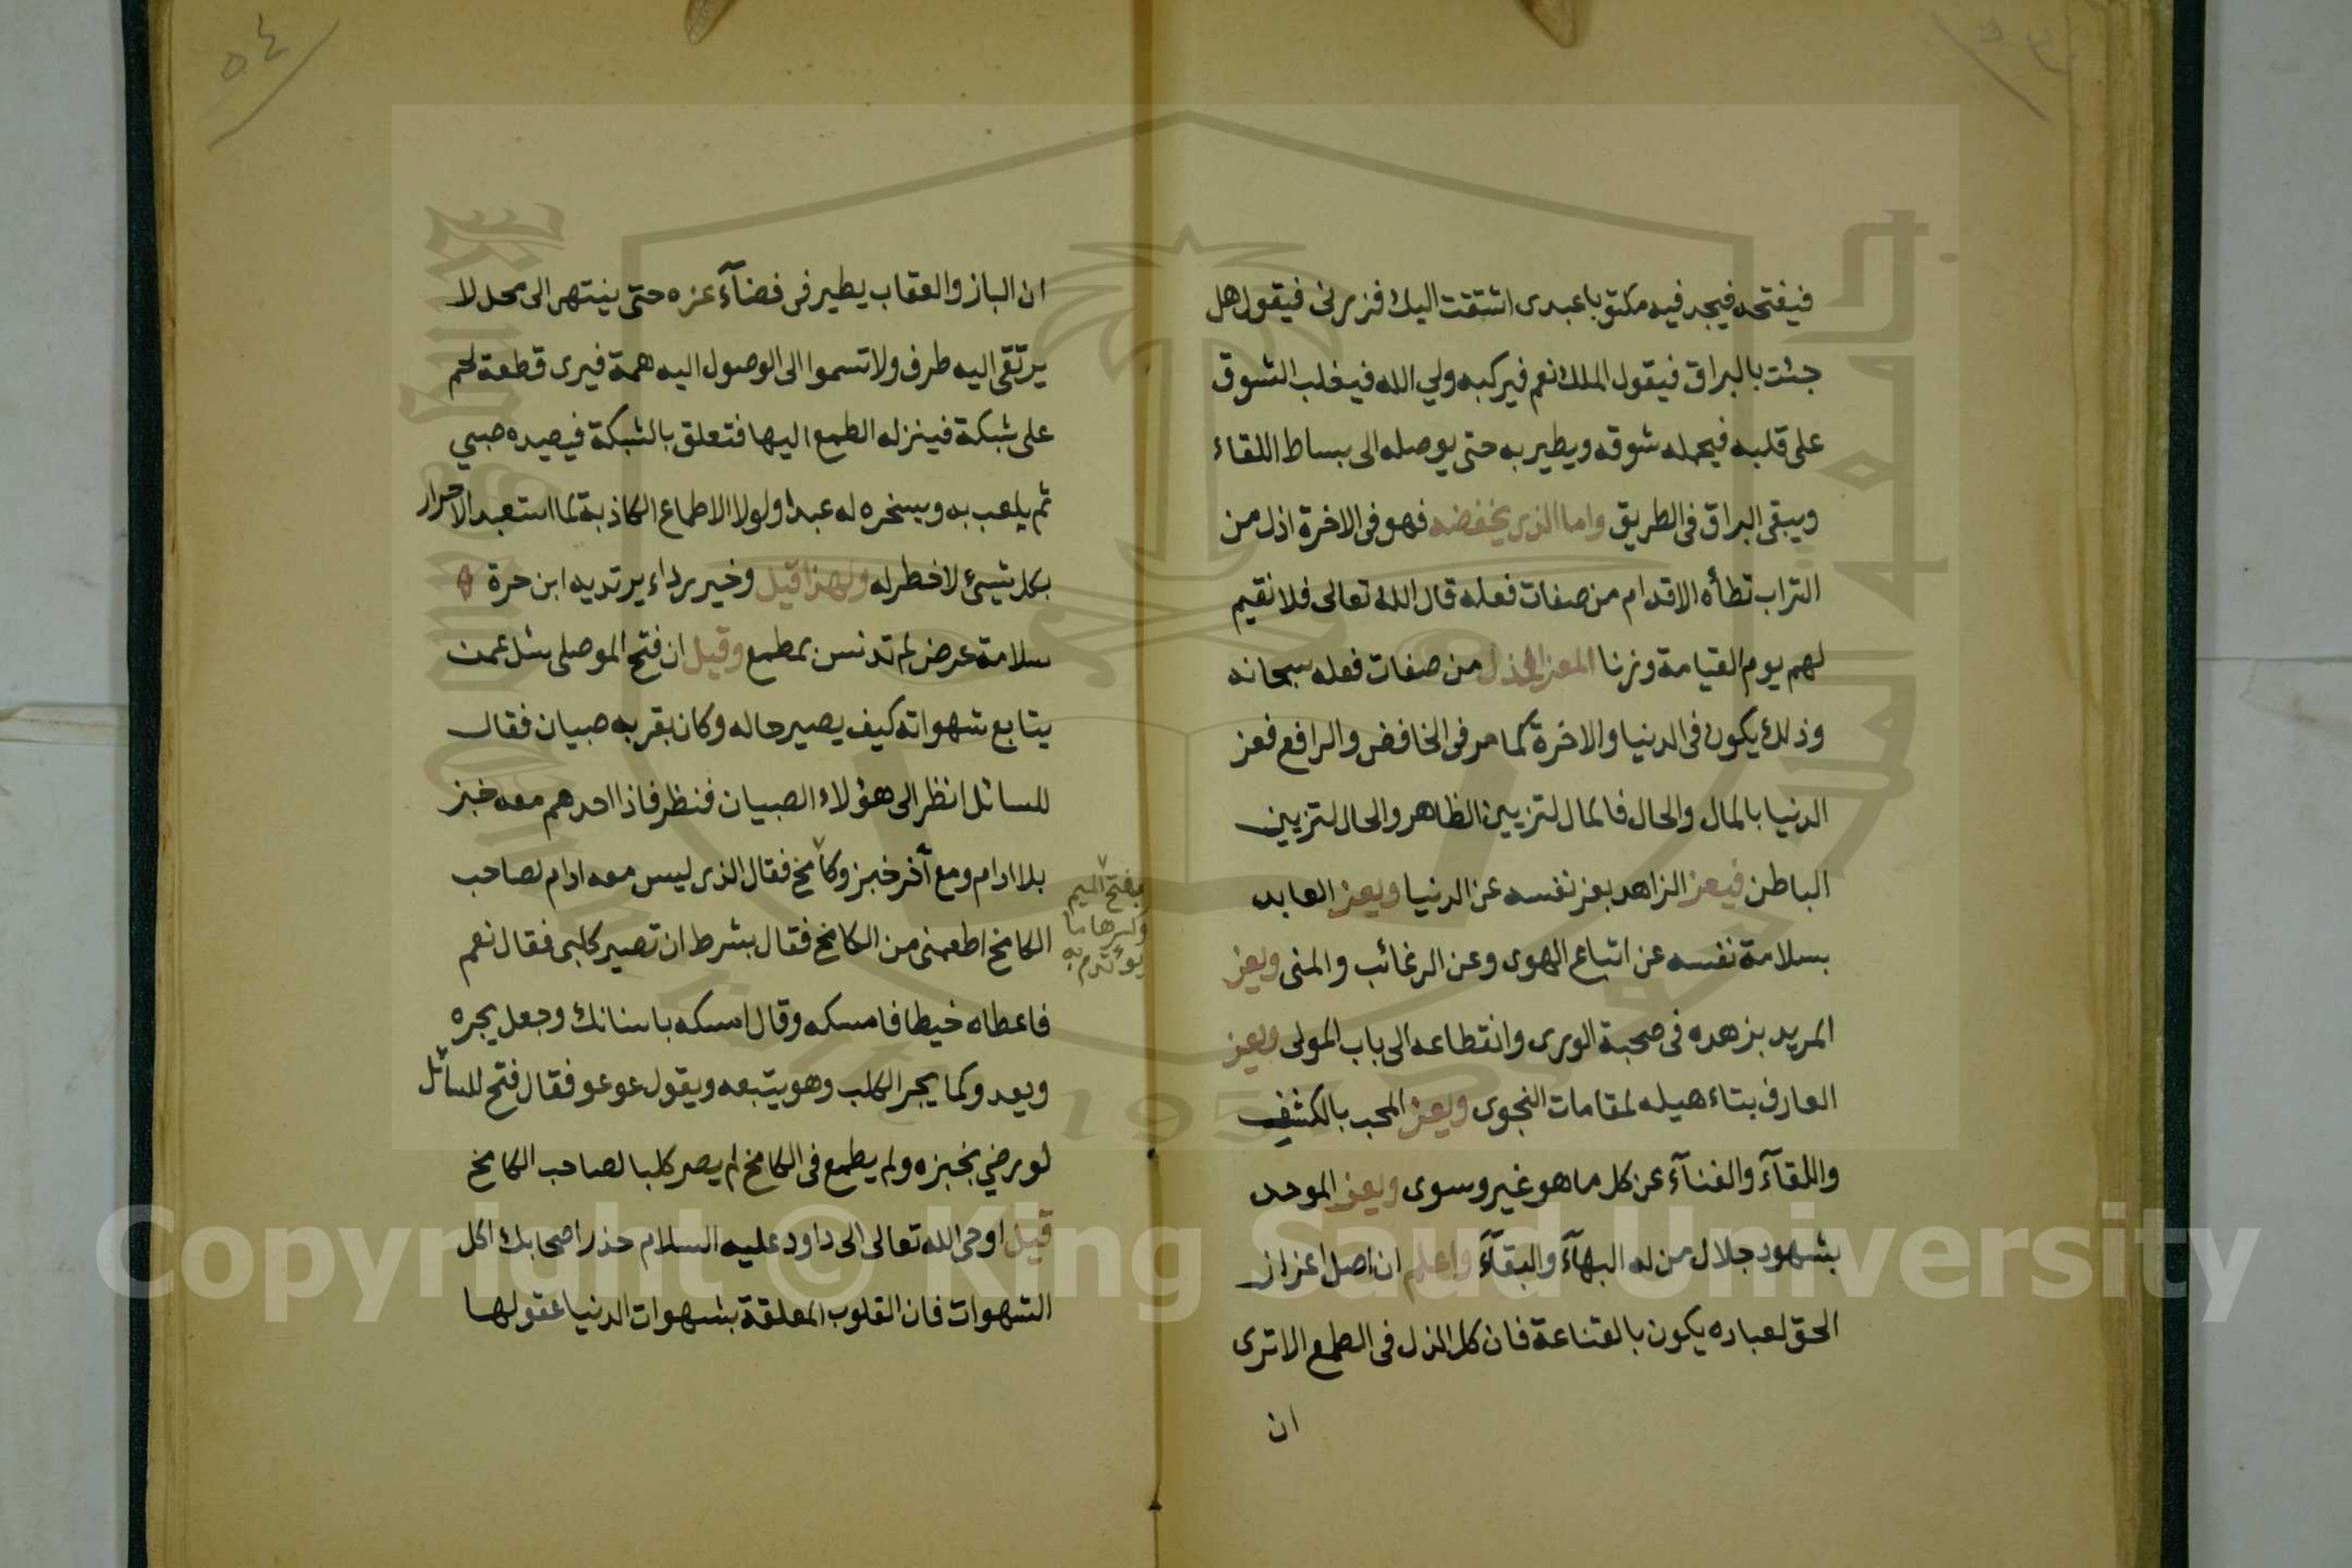 فيفتحه فيجد فيه مكتوبا عبدى اشتقت اليك فزرنى فيقول هل
جئت بالبراق فيقول الملك نعم فيركبه ولي الله فيغلب الشوق
على قلبه فيحمله شوقه ويطير به حتى يوصله الى بساط اللقاء
ويبقى البراق فى الطريق واما الذى يخفضه فهو فى الاخرة اذل من
التراب تطأه الاقدام من صفات فعله قال الله تعالى فلا نقيم
لهم يوم القيامة وزنا المعز المذل من صفات فعله سبحانه
وذلك يكون فى الدنيا والاخرة كما مر فى الخافض والرافع فعز
الدنيا بالمال والحال فالمال لتزيين الظاهر والحال لتزيين
الباطن فيعز الزاهد بعز نفسه عن الدنيا ويعز العابد
بسلامة نفسه عن اتباع الهوى وعن الرغائب والمنى ويعز
المريد بزهده فى صحبة الورى وانقطاعه الى باب المولى ويعز
العارف بتاءهيله لمقامات النجوى ويعز المحب بالكشف
واللقآء والفنآء عن كل ما هو غير وسوى ويعز الموحد
بشهود جلال من له البهآء والبقآء واعلم ان اصل اعزاز
الحق لعباده يكون بالقناعة فان كل الذل فى الطمع الا ترى
ان
٥٤
ان الباز والعقاب يطير فى فضآء عزه حتى ينتهى الى محل لا
يرتقى اليه طرف ولا تسموا الى الوصول اليه همة فيرى قطعة لحم
على شبكة فينزله الطمع اليها فتعلق بالشبكة فيصيده صبي
ثم يلعب به ويسخره له عبدا ولولا الاطماع الكاذبة لما استعبد الاحرار
بكل شيئ لا خطر له ولهذا قيل وخير رداء يرتديه ابن حرة
سلامة عرض لم تدنس بمطمع وقيل ان فتح الموصلى سئل عمن
يتابع شهواته كيف يصير حاله وكان بقربه صبيان فقال
للسائل انظر الى هؤلاء الصبيان فنظر فاذا احدهم معه خبز
بلا ادام ومع آخر خبز وكامخ فقال الذى ليس معه ادام لصاحب
الكامخ اطعمنى من الكامخ فقال بشرط ان تصير كلبى فقال نعم
فاعطاه خيطا فامسكه وقال امسكه باسنانك وجعل يجره
ويعدو كما يجر الكلب وهو يتبعه ويقول عوعو فقال فتح للسائل
لو رضي بخبزه ولم يطمع فى الكامخ لم يصر كلبا لصاحب الكامخ
قيل اوحى الله تعالى الى داود عليه السلام حذر اصحابك اكل
الشهوات فان القلوب المعلقة بشهوات الدنيا عقولها
بفتح الميم
وكسرها ما
يوءتدم به
Copyright © King Saud University
1957